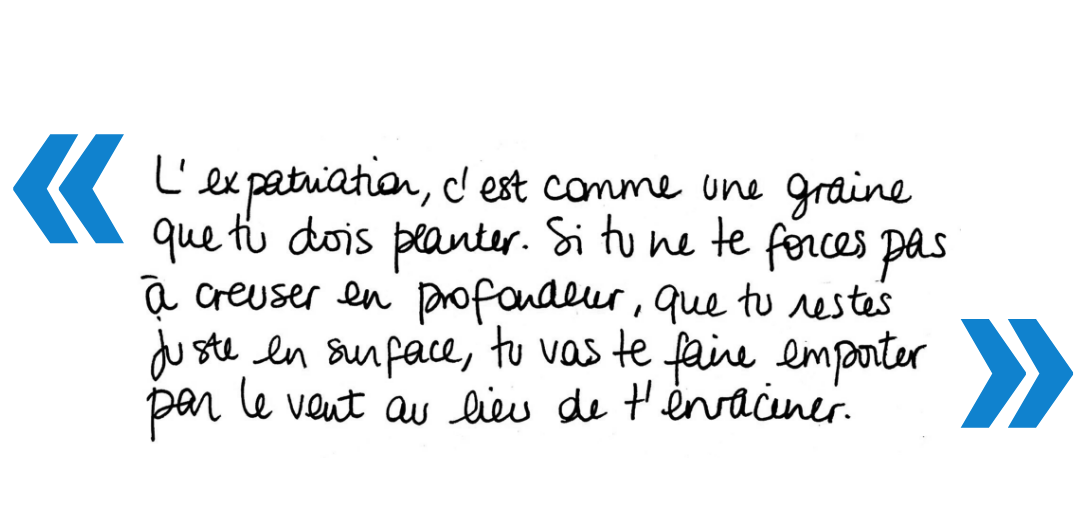 « L'expatriation, c'est comme une graine
que tu dois planter. Si tu ne te forces pas
à creuser en profondeur, que tu restes
juste en surface, tu vas te faire emporter
par le vent au lieu de t'enraciner. »